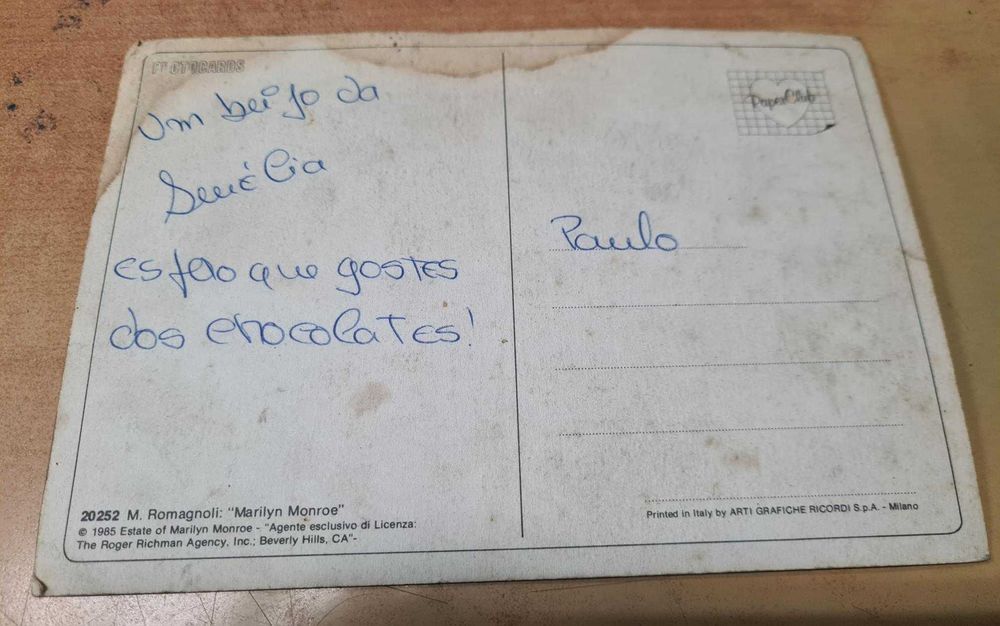 FOTOCARDS
um beijo da
Amélia
espero que gostes
dos chocolates!
PaperClub
Paulo
20252 M. Romagnoli: "Marilyn Monroe"
© 1985 Estate of Marilyn Monroe - "Agente esclusivo di Licenza:
The Roger Richman Agency, Inc.; Beverly Hills, CA"-
Printed in Italy by ARTI GRAFICHE RICORDI S.p.A. - Milano